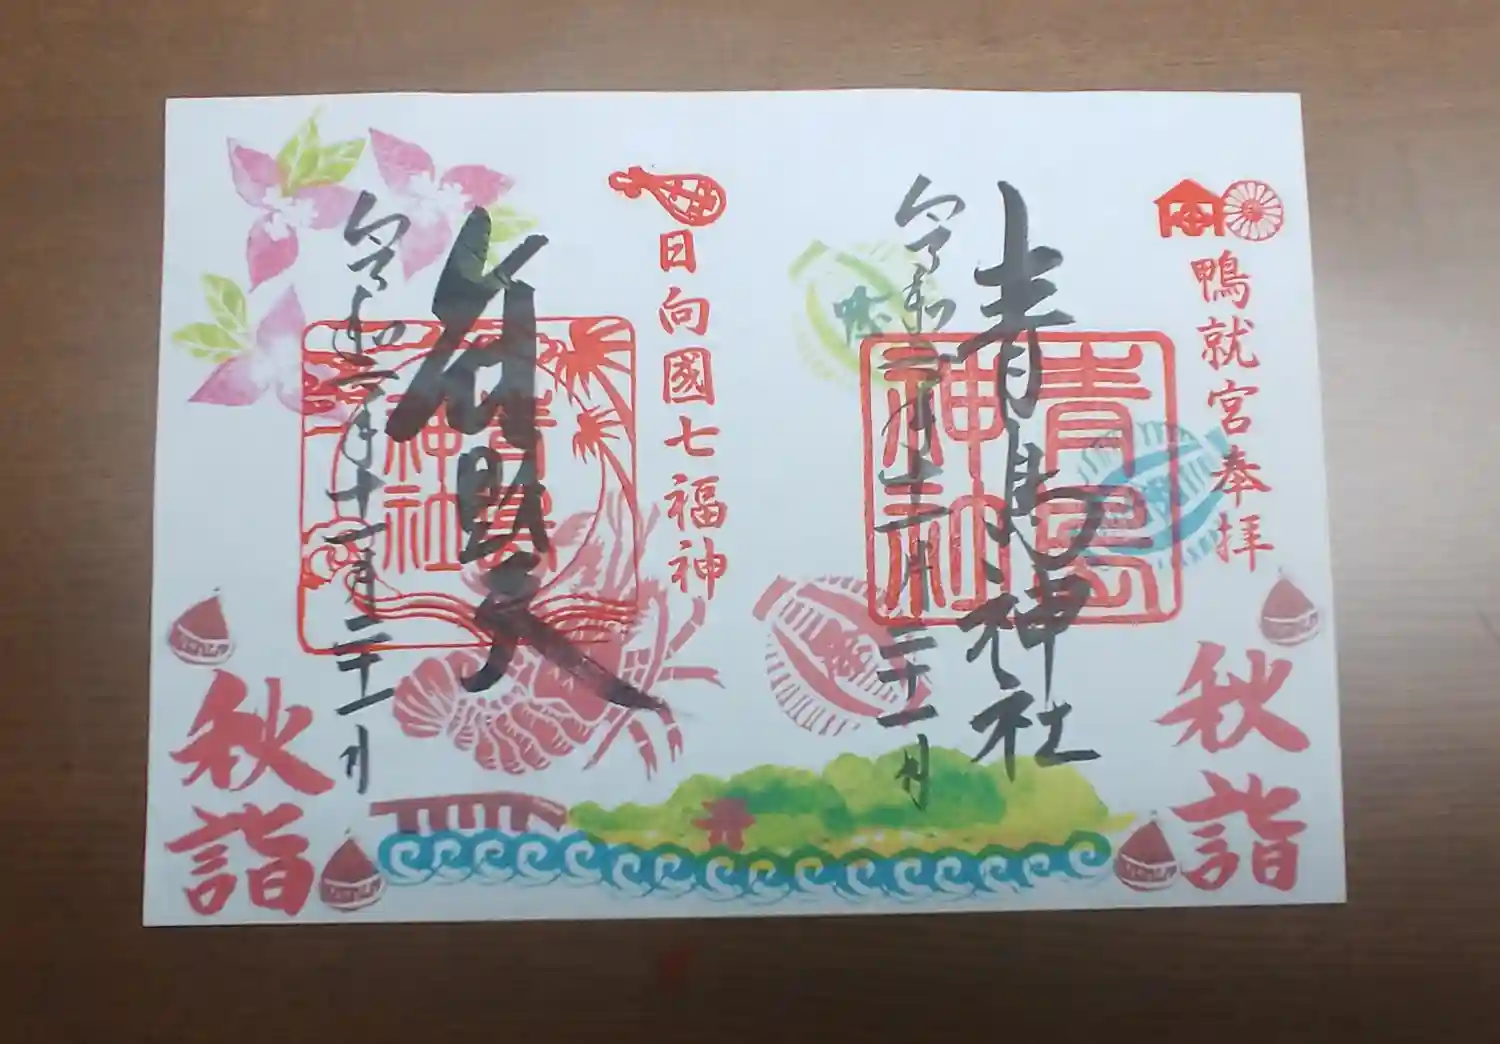 鴨就宮奉拝
青島神社
青島
神社
令和二年十一月二十一日
秋詣
日向國七福神
弁財天
青島
神社
令和二年十一月二十一日
秋詣